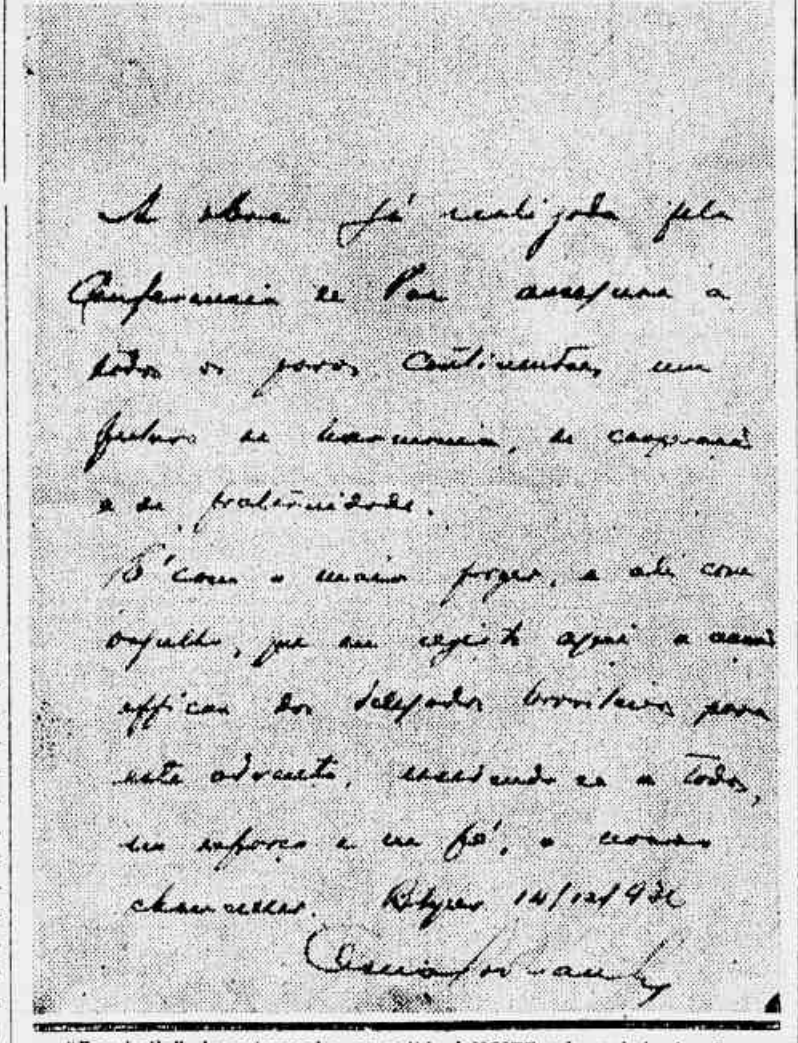 A obra já realizada pela
Conferencia de Paz assegura a
todos os povos continentaes um
futuro de harmonia, de
e de fraternidade.
E' com o maior e até com
orgulho, que eu registo aqui a
efficaz dos delegados brasileiros para
este advento, a todos,
no esforço e na fé, o nosso
chanceller. 14/12/936